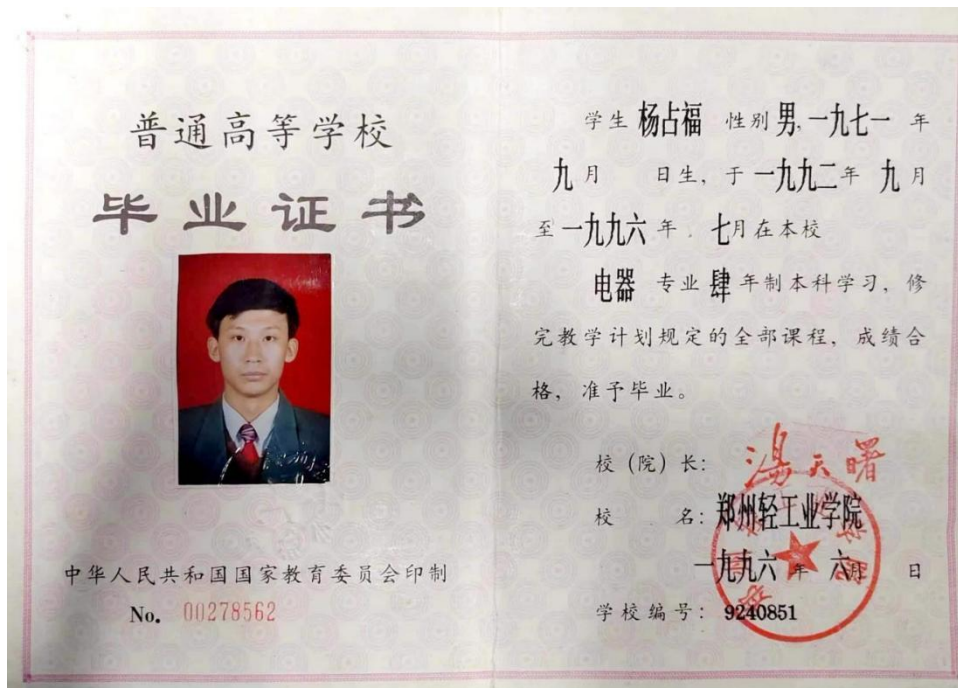 普通高等学校
毕业证书
中华人民共和国国家教育委员会印制
No. 00278562
学生 杨占福 性别 男, 一九七一 年
九月 日生, 于 一九九二年 九月
至 一九九六 年 . 七月在本校
电器 专业 肆 年制本科学习, 修
完教学计划规定的全部课程, 成绩合
格, 准予毕业。
校 (院) 长: 汤天曙
校 名: 郑州轻工业学院
一九九六 年 六月 日
学校编号: 9240851